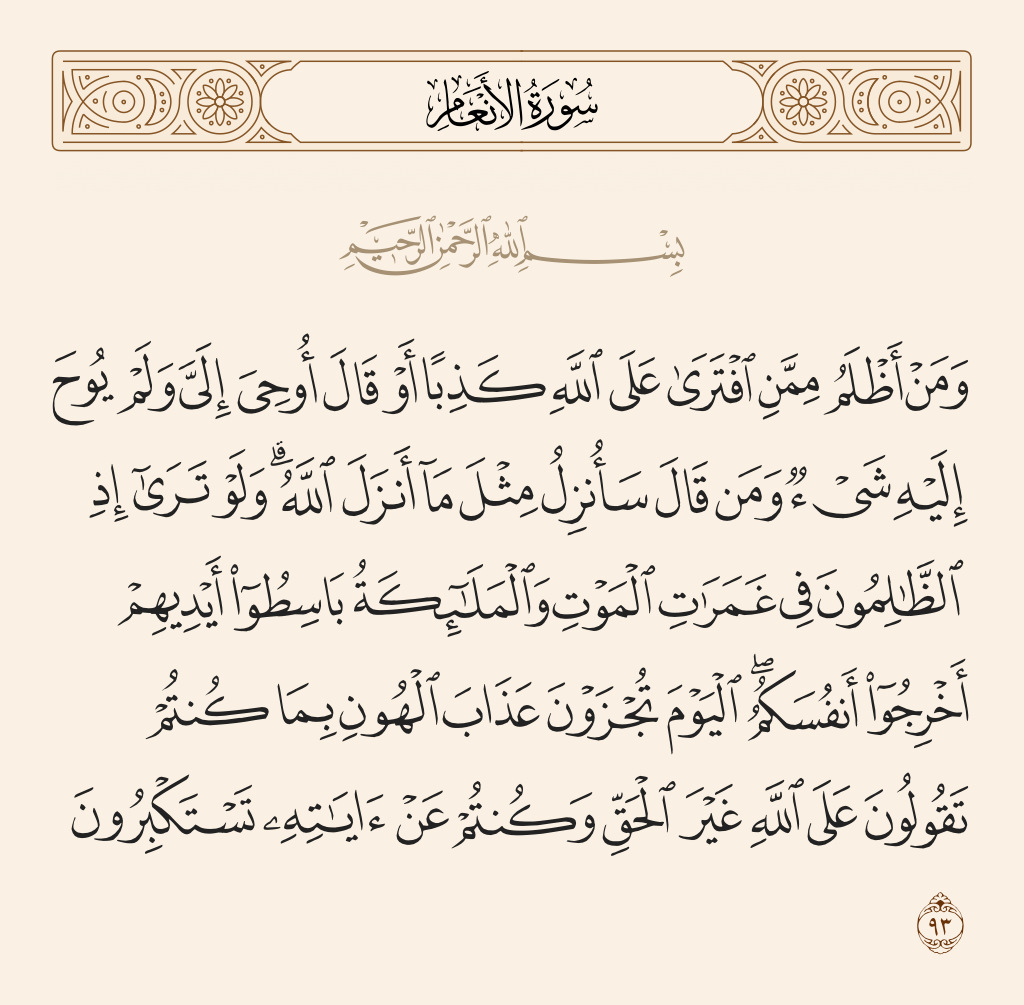 سُورَةُ الأَنْعَامِ
بِسْمِ ٱللَّهِ ٱلرَّحْمَٰنِ ٱلرَّحِيمِ
وَمَنْ أَظْلَمُ مِمَّنِ ٱفْتَرَىٰ عَلَى ٱللَّهِ كَذِبًا أَوْ قَالَ أُوحِىَ إِلَىَّ وَلَمْ يُوحَ
إِلَيْهِ شَىْءٌ وَمَن قَالَ سَأُنزِلُ مِثْلَ مَآ أَنزَلَ ٱللَّهُ ۗ وَلَوْ تَرَىٰٓ إِذِ
ٱلظَّٰلِمُونَ فِى غَمَرَٰتِ ٱلْمَوْتِ وَٱلْمَلَٰٓئِكَةُ بَاسِطُوٓا۟ أَيْدِيهِمْ
أَخْرِجُوٓا۟ أَنفُسَكُمُ ۖ ٱلْيَوْمَ تُجْزَوْنَ عَذَابَ ٱلْهُونِ بِمَا كُنتُمْ
تَقُولُونَ عَلَى ٱللَّهِ غَيْرَ ٱلْحَقِّ وَكُنتُمْ عَنْ ءَايَٰتِهِۦ تَسْتَكْبِرُونَ
٩٣